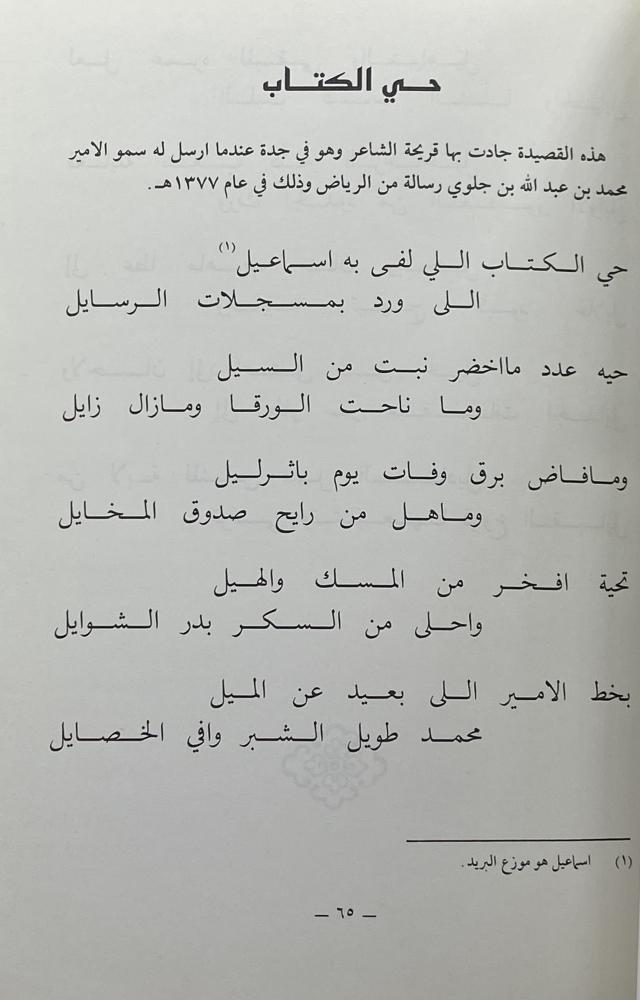 حي الكتاب
هذه القصيدة جادت بها قريحة الشاعر وهو في جدة عندما ارسل له سمو الامير
محمد بن عبد الله بن جلوي رسالة من الرياض وذلك في عام ١٣٧٧هـ.
حي الكتاب اللي لفى به اسماعيل(١)
اللى ورد بمسجلات الرسايل
حيه عدد مااخضر نبت من السيل
وما ناحت الورقا ومازال زايل
ومافاض برق وفات يوم باثرليل
وماهل من رايح صدوق المخايل
تحية افخر من المسك والهيل
واحلى من السكر بدر الشوايل
بخط الامير اللى بعيد عن الميل
محمد طويل الشبر وافي الخصايل
(١) اسماعيل هو موزع البريد.
— ٦٥ —